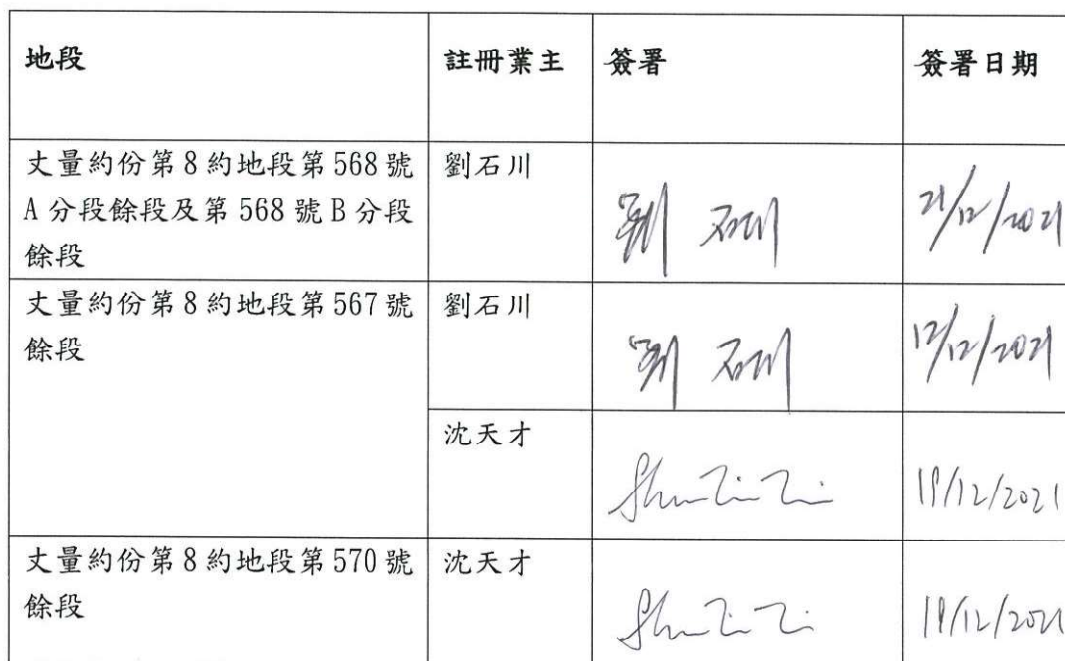 地段 註冊業主 簽署 簽署日期
丈量約份第8約地段第568號 劉石川
A分段餘段及第568號B分段 劉 石川 21/12/2021
餘段
丈量約份第8約地段第567號 劉石川
餘段 劉 石川 12/12/2021
沈天才
19/12/2021
丈量約份第8約地段第570號 沈天才
餘段 19/12/2021